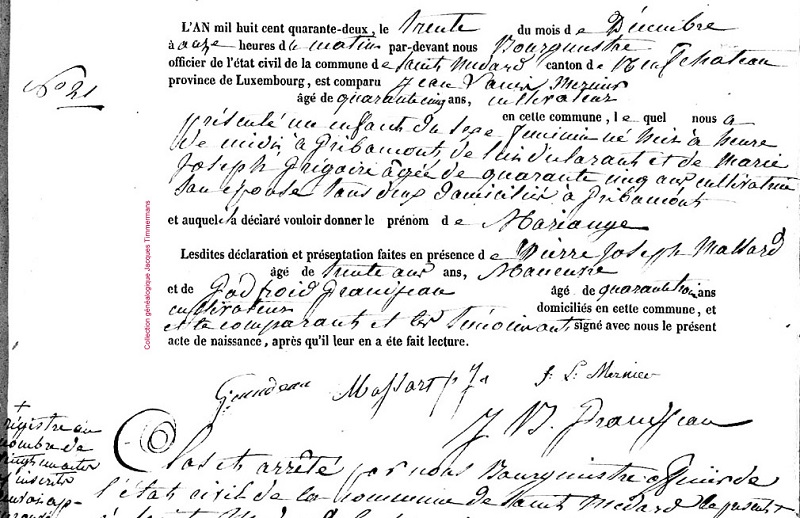 L'AN mil huit cent quarante-deux, le trente du mois de Décembre
à onze heures du matin par-devant nous Bourgmestre
officier de l'état civil de la commune de Saint Médard canton de Neufchateau
province de Luxembourg, est comparu Jean Louis Mernier
âgé de quarante cinq ans, cultivateur
No 21
en cette commune, le quel nous a
présenté un enfant du sexe féminin né hier à heure
de midi à Gribamont, de lui déclarant et de Marie
Joseph Grégoire âgée de quarante cinq ans cultivatrice
son épouse tous deux domiciliés à Gribamont
et auquel il a déclaré vouloir donner le prénom de Mariange
Lesdites déclaration et présentation faites en présence de Pierre Joseph Massard
âgé de trente ans, Manœuvre
et de Godfroid Grandjean âgé de quarante ans
cultivateur domiciliés en cette commune, et
et le comparant et les témoins ont signé avec nous le présent
acte de naissance, après qu'il leur en a été fait lecture.
Massart p J J. L. Mernier
J B. Grandjean
registre au
nombre de
vingt
inscrits
Clos et arrêté par nous Bourgmestre officier de
l'état civil de la commune de Saint Médard le présent
Collection généalogique Jacques Timmermans